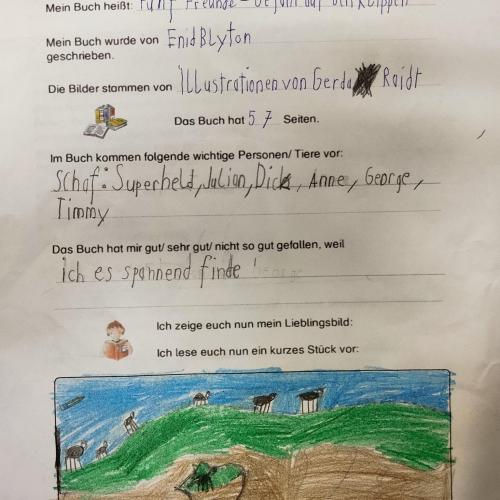 Mein Buch heißt: Fünf Freunde - Gefahr auf den Klippen
Mein Buch wurde von Enid Blyton
geschrieben.
Die Bilder stammen von Illustrationen von Gerda Raidt
Das Buch hat 57 Seiten.
Im Buch kommen folgende wichtige Personen/ Tiere vor:
Schaf: Superheld, Julian, Dick, Anne, George,
Timmy
Das Buch hat mir gut/ sehr gut/ nicht so gut gefallen, weil
ich es spannend finde!
Ich zeige euch nun mein Lieblingsbild:
Ich lese euch nun ein kurzes Stück vor: